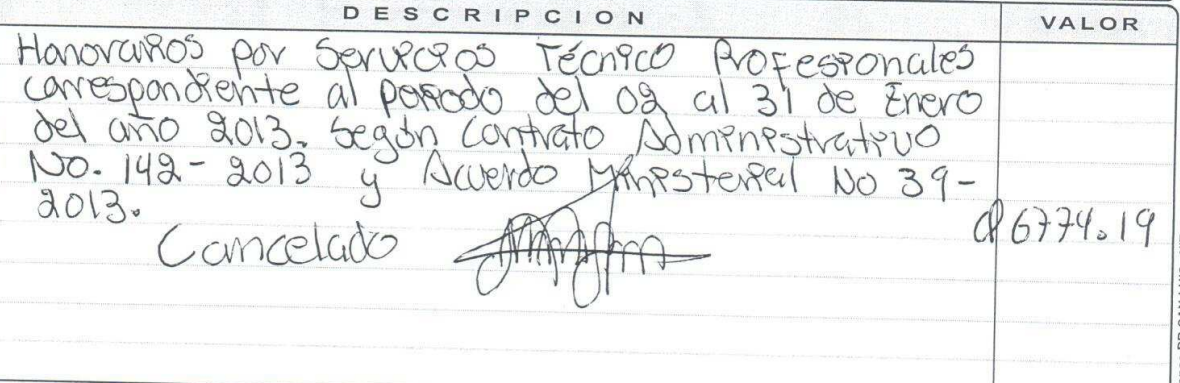 DESCRIPCION VALOR
Honorarios por Servicios Técnico Profesionales
correspondiente al periodo del 02 al 31 de Enero
del año 2013. Según Contrato Administrativo
No. 142-2013 y Acuerdo Ministerial No 39-
2013.
Q6774.19
Cancelado